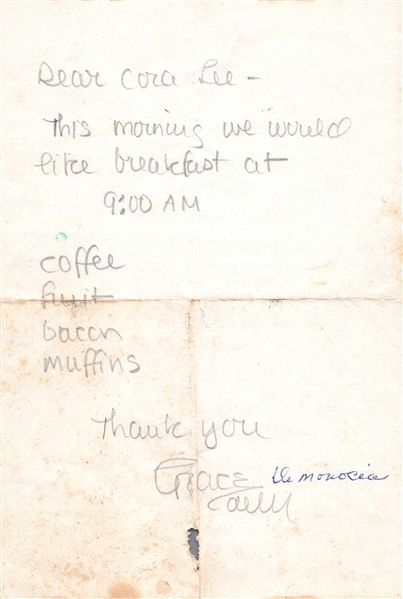 Dear Cora Lee -
This morning we would
like breakfast at
9:00 AM
coffee
fruit
bacon
muffins
Thank you
Grace de Monaco